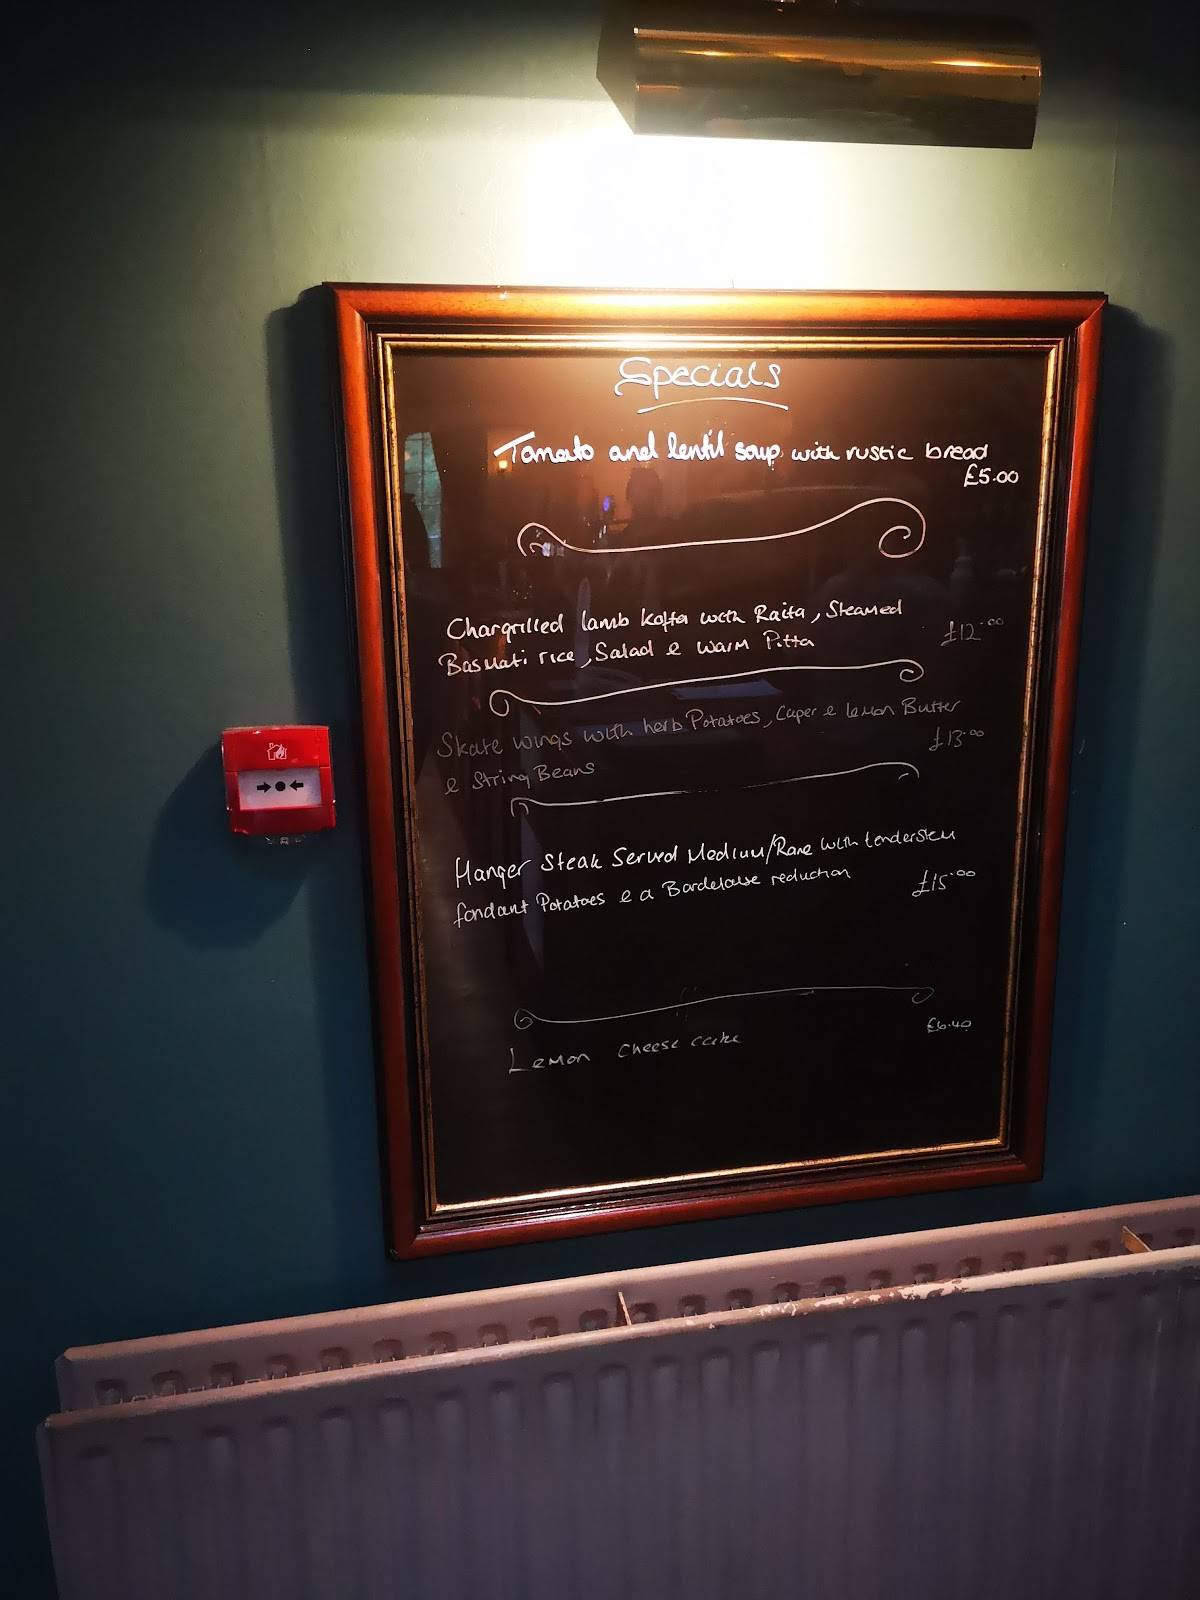 Specials
Tomato and lentil soup with rustic bread
£5.00
Chargrilled lamb kofta with Raita, Steamed
Basmati rice, Salad & warm Pitta
£12.00
Skate wings with herb Potatoes, Caper & lemon Butter
& String Beans
£13.00
Hanger Steak Served Medium/Rare with tenderstem
fondant Potatoes & a Bordelaise reduction
£15.00
Lemon cheese cake
£6.40